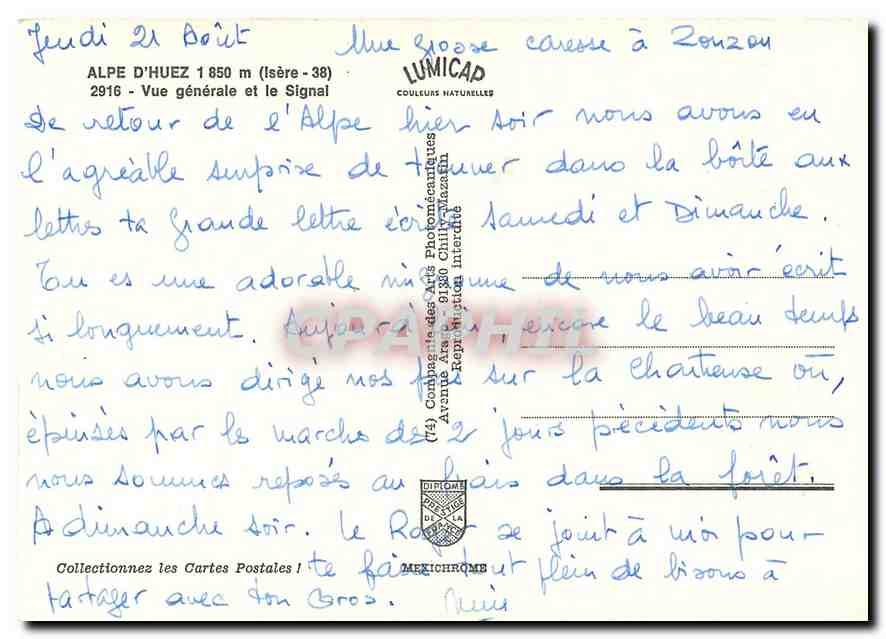 Jeudi 21 Août
Une grosse caresse à Zonzon
ALPE D'HUEZ 1 850 m (Isère - 38)
2916 - Vue générale et le Signal
LUMICAP
COULEURS NATURELLES
De retour de l'Alpe hier soir nous avons eu
l'agréable surprise de trouver dans la bôite aux
lettres ta grande lettre écrite samedi et Dimanche.
Tu es une adorable mignonne de nous avoir écrit
si longuement. Aujourd'hui, encore le beau temps
nous avons dirigé nos pas sur la Chartreuse où,
épuisés par la marche des 2 jours précédents nous
nous sommes reposés au frais dans la forêt.
A dimanche soir. Le se joint à moi pour
te faire tout plein de bisous à
partager avec ton Gros.
(74) Compagnie des Arts Photomécaniques
Avenue Arago - 91380 Chilly-Mazarin
Reproduction interdite
CPAPHIL
DIPLOME
PRESTIGE
DE LA
FRANCE
Collectionnez les Cartes Postales !
MEXICHROME